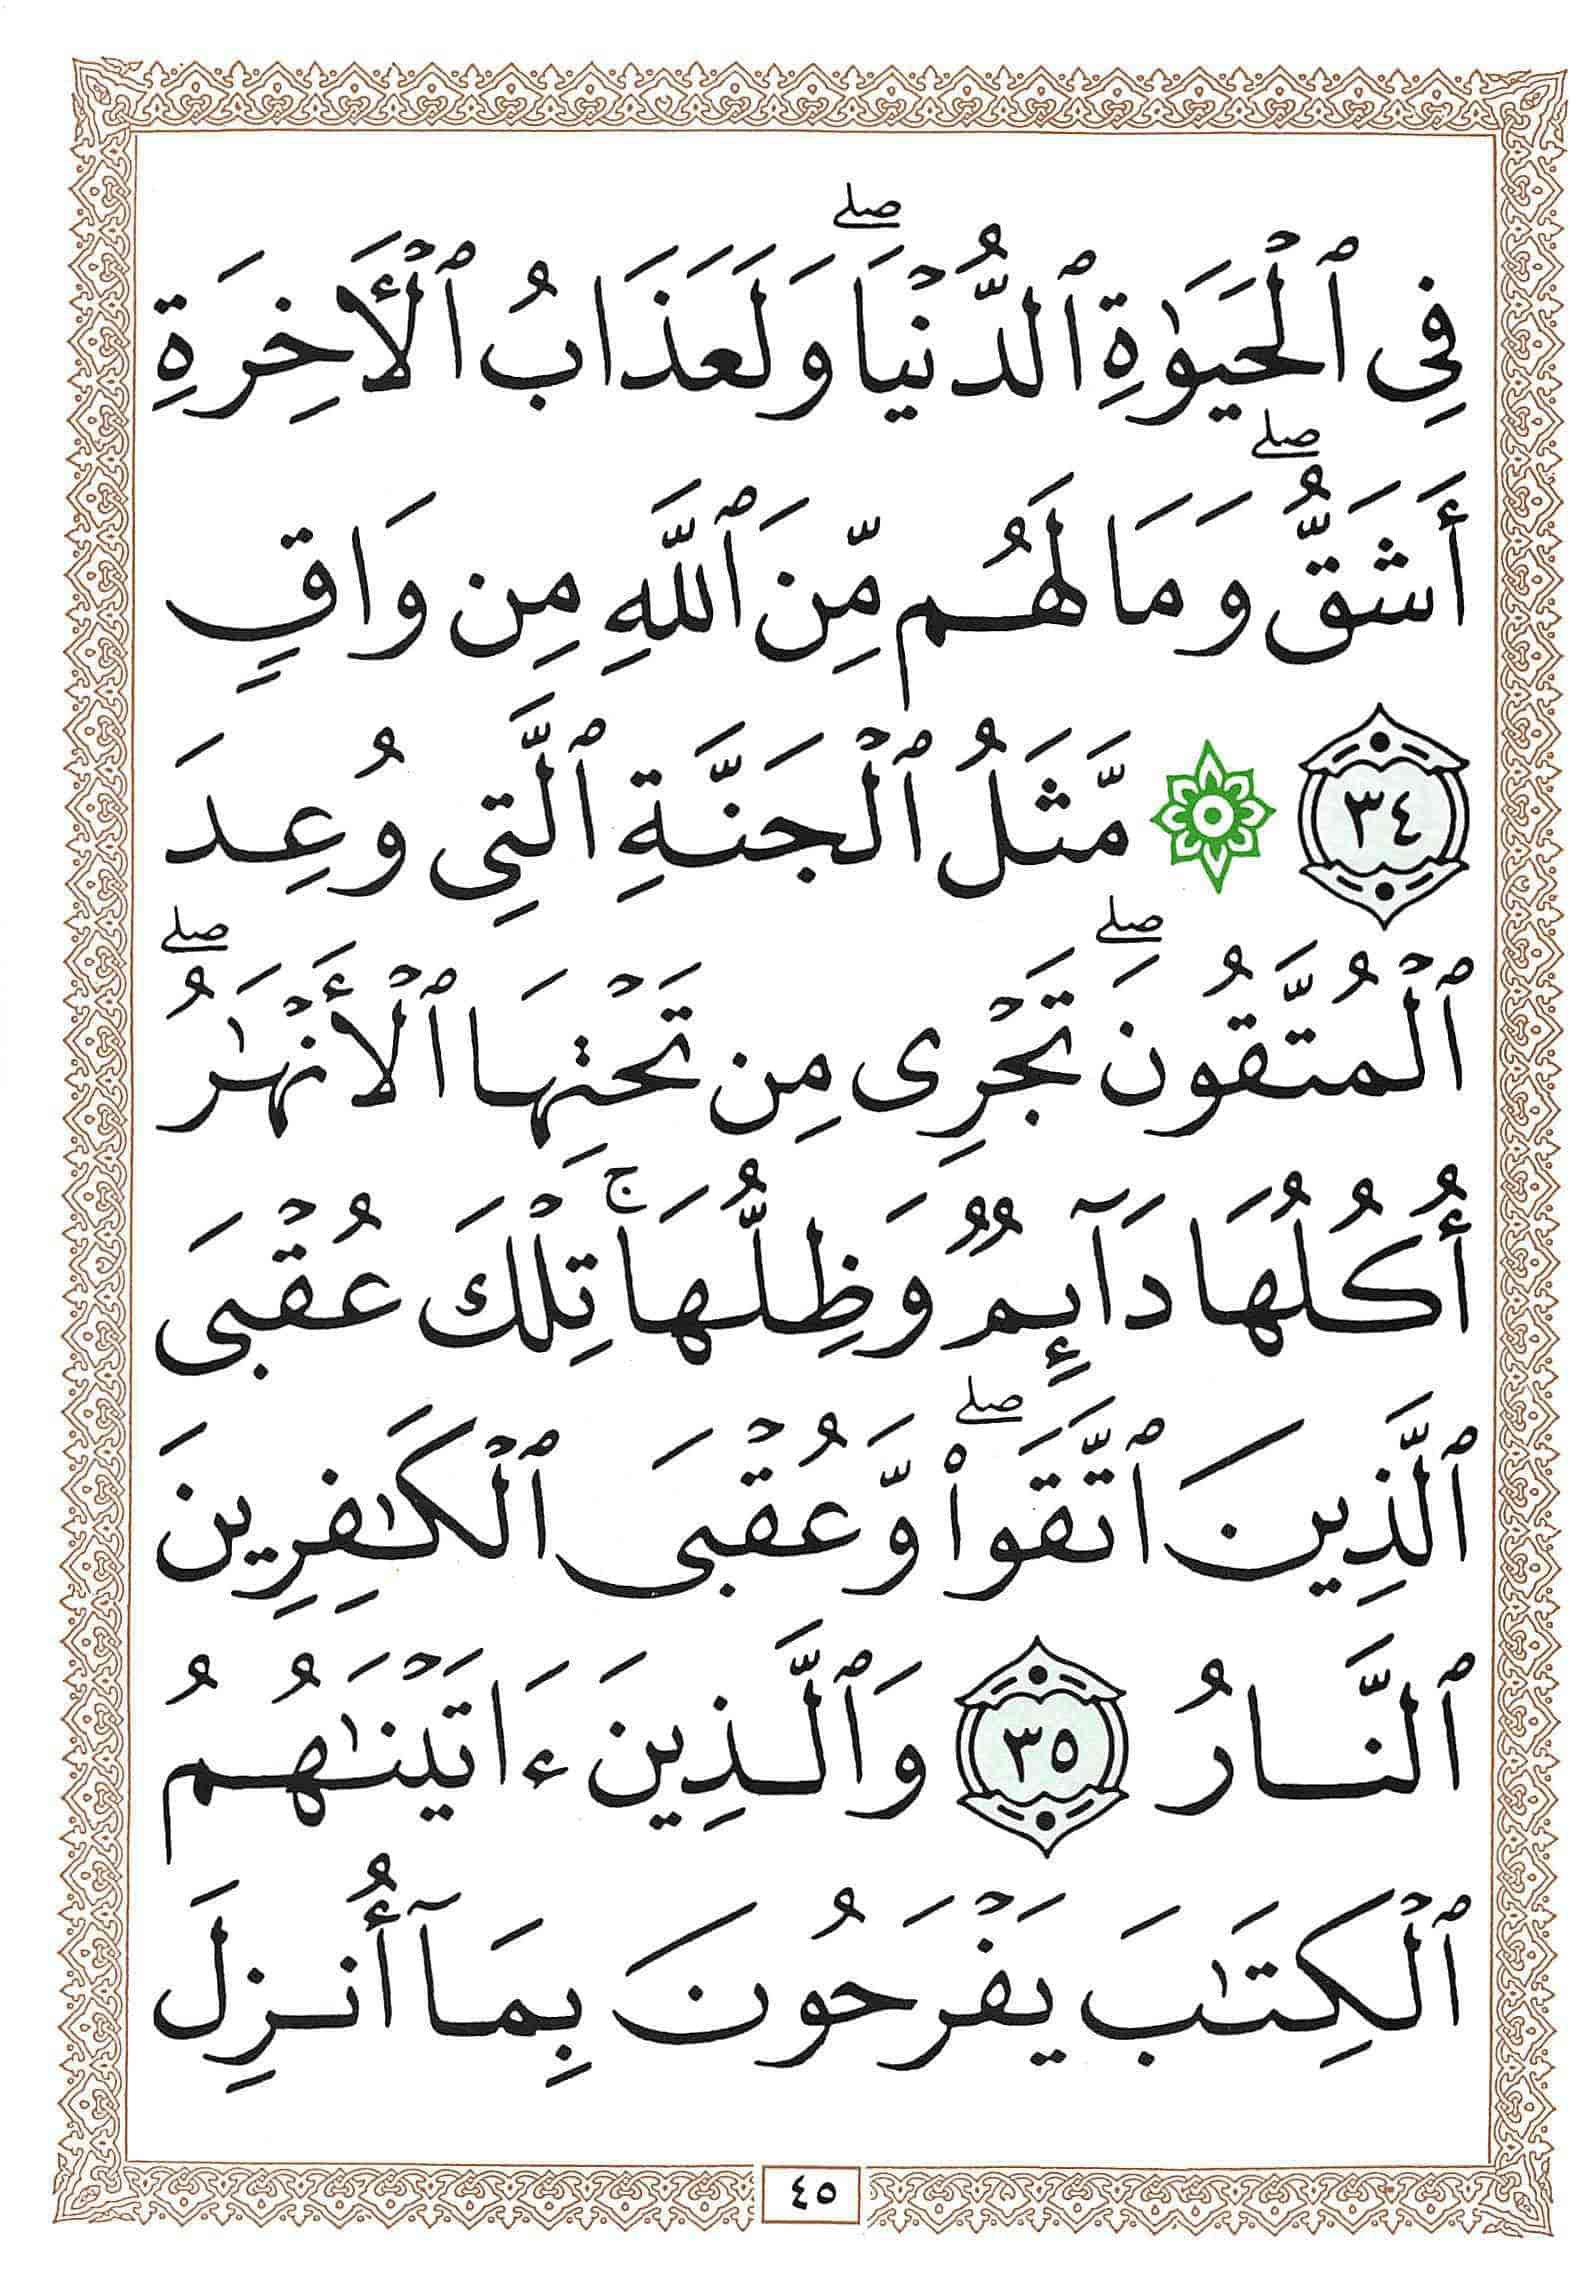 فِى ٱلْحَيَوٰةِ ٱلدُّنْيَا ۖ وَلَعَذَابُ ٱلْأَخِرَةِ
أَشَقُّ ۖ وَمَا لَهُم مِّنَ ٱللَّهِ مِن وَاقٍ
٣٤ ۞ مَّثَلُ ٱلْجَنَّةِ ٱلَّتِى وُعِدَ
ٱلْمُتَّقُونَ ۖ تَجْرِى مِن تَحْتِهَا ٱلْأَنْهَٰرُ ۖ
أُكُلُهَا دَآئِمٌ وَظِلُّهَا ۚ تِلْكَ عُقْبَى
ٱلَّذِينَ ٱتَّقَوا۟ ۖ وَّعُقْبَى ٱلْكَٰفِرِينَ
ٱلنَّارُ ٣٥ وَٱلَّذِينَ ءَاتَيْنَٰهُمُ
ٱلْكِتَٰبَ يَفْرَحُونَ بِمَآ أُنزِلَ
٤٥